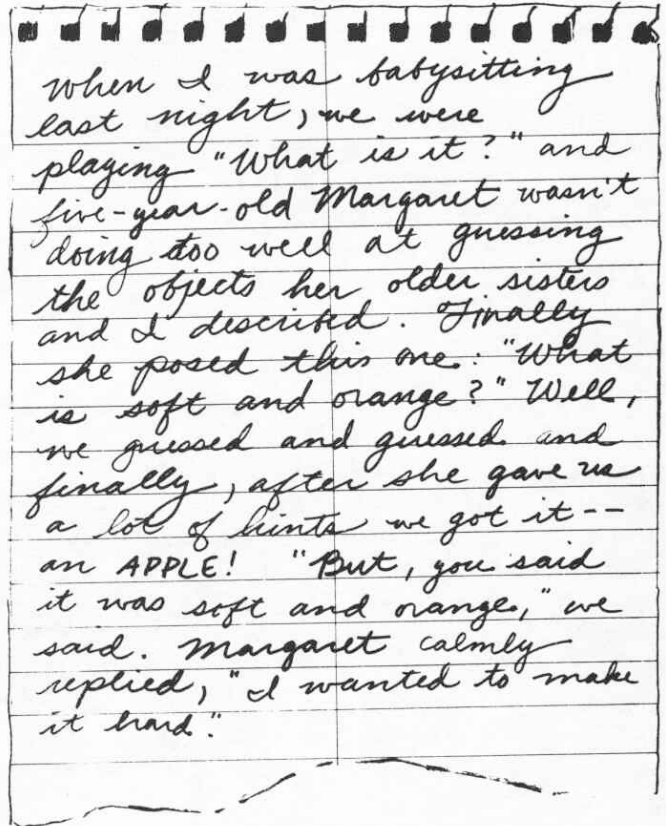 When I was babysitting
last night, we were
playing "What is it?" and
five-year-old Margaret wasn't
doing too well at guessing
the objects her older sisters
and I described. Finally
she posed this one: "What
is soft and orange?" Well,
we guessed and guessed and
finally, after she gave us
a lot of hints we got it--
an APPLE! "But, you said
it was soft and orange," we
said. Margaret calmly
replied, "I wanted to make
it hard."